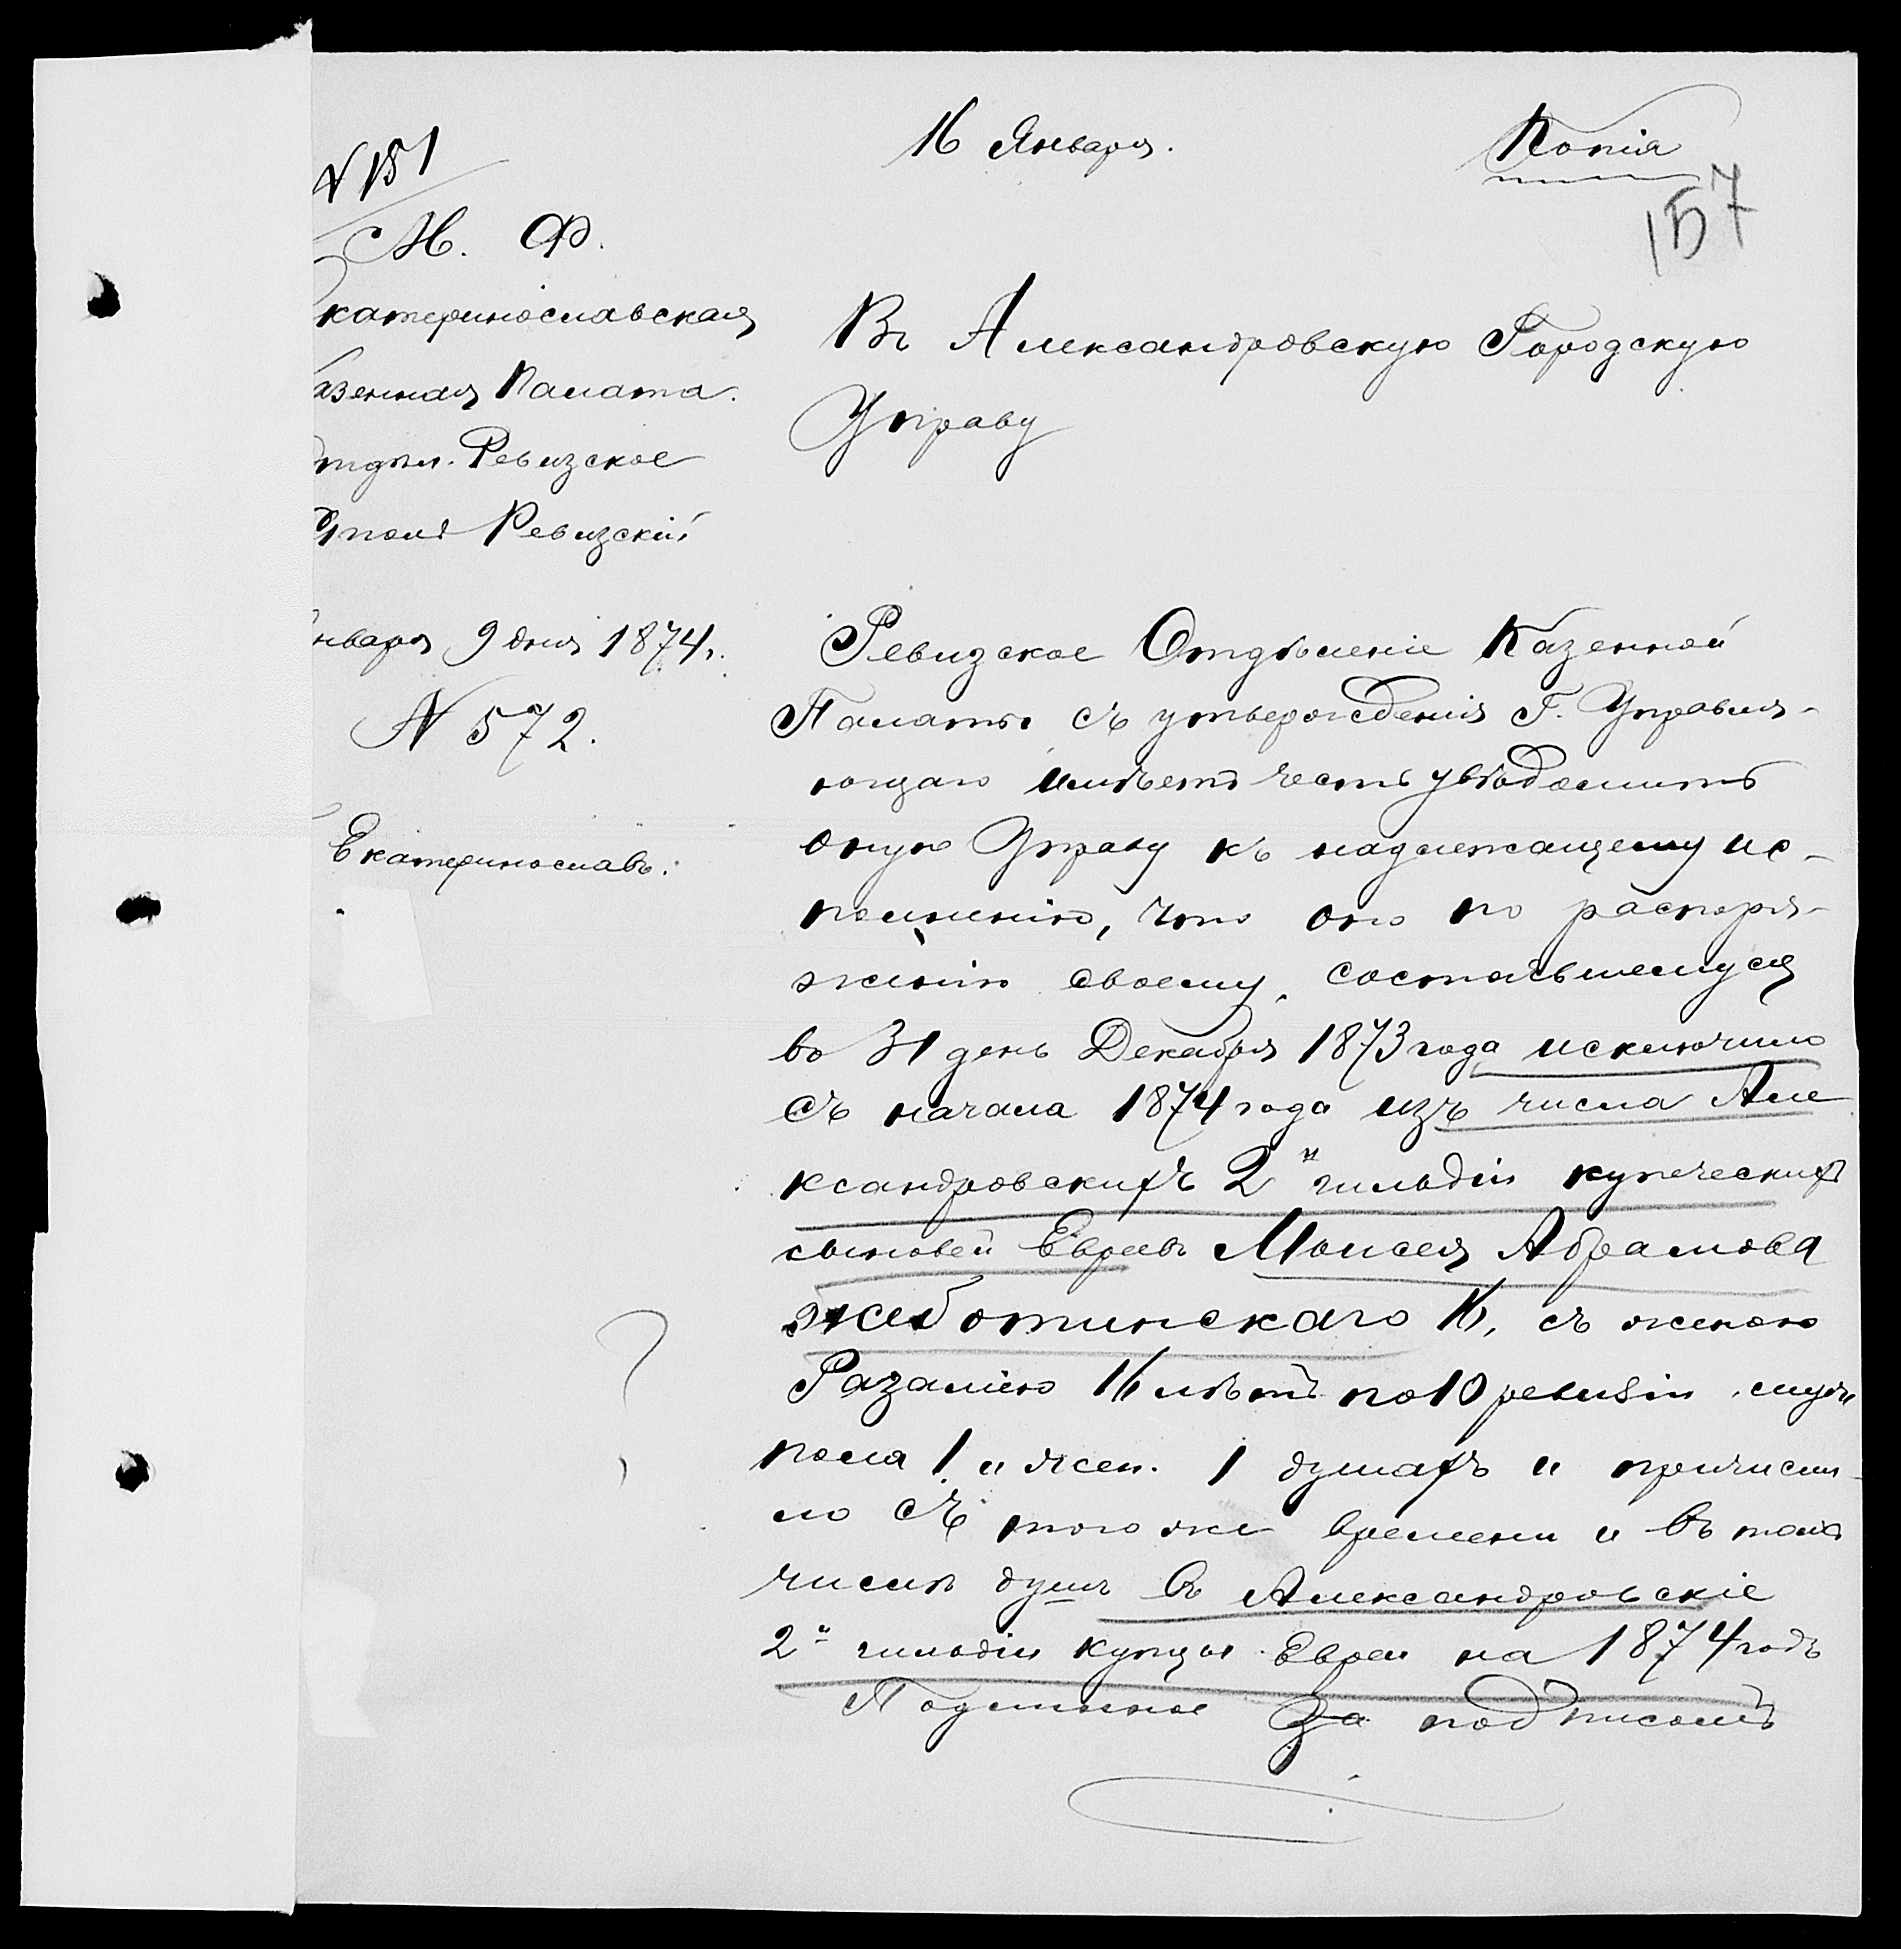 16 Января.
Копія
157
N 151
М. Ф.
катеринославская
азенная Палата.
тдѣл. Ревизское
Столъ Ревизскій
нваря 9 дня 1874 г.
N 572.
Екатеринославъ.
Въ Александровскую Городскую
Управу
Ревизское Отдѣленіе Казенной
Палаты съ утвержденія Г. Управля-
ющаго имѣетъ честь увѣдомить
оную Управу къ надлежащему ис-
полненію, что оно по распоря-
женію своему, состоявшемуся
въ 31 день Декабря 1873 года исключило
съ начала 1874 года изъ числа Але
ксандровскихъ 2й гильдіи купеческихъ
сыновей Евреевъ Моисея Абрамова
Жеботинскаго 16, съ женою
Разаліею 16 лѣтъ по 10 ревизіи муж.
пола 1 и жен. 1 душахъ и причисли-
ло съ того же времени и въ томъ
числѣ душъ въ Александровскіе
2й гильдіи купцы Евреи на 1874 годъ
Подлинное за подписомъ